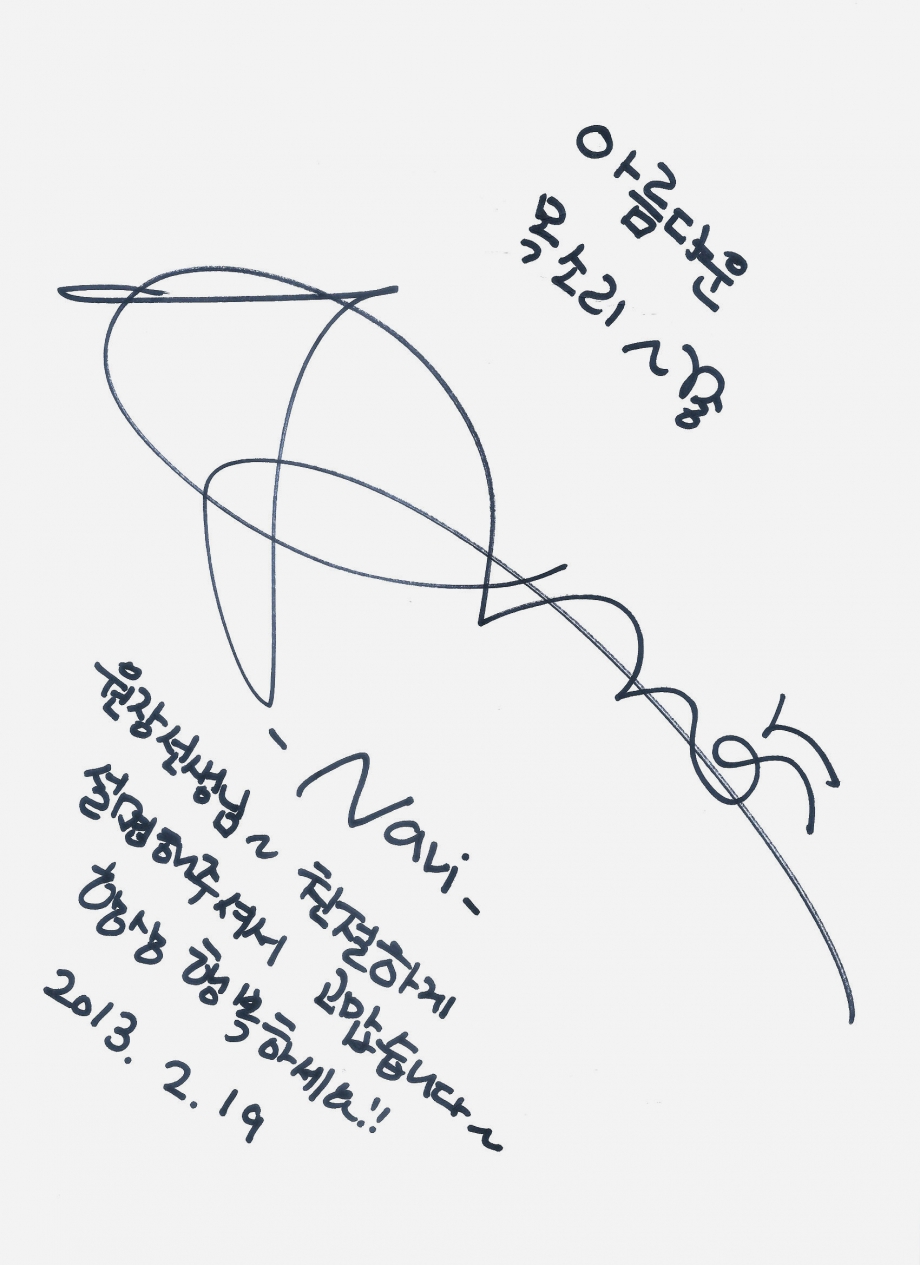 아름다운
목소리 ~
- Navi -
원장선생님~ 친절하게
설명해주셔서 고맙습니다~
항상 행복하세요!!
2013. 2. 19